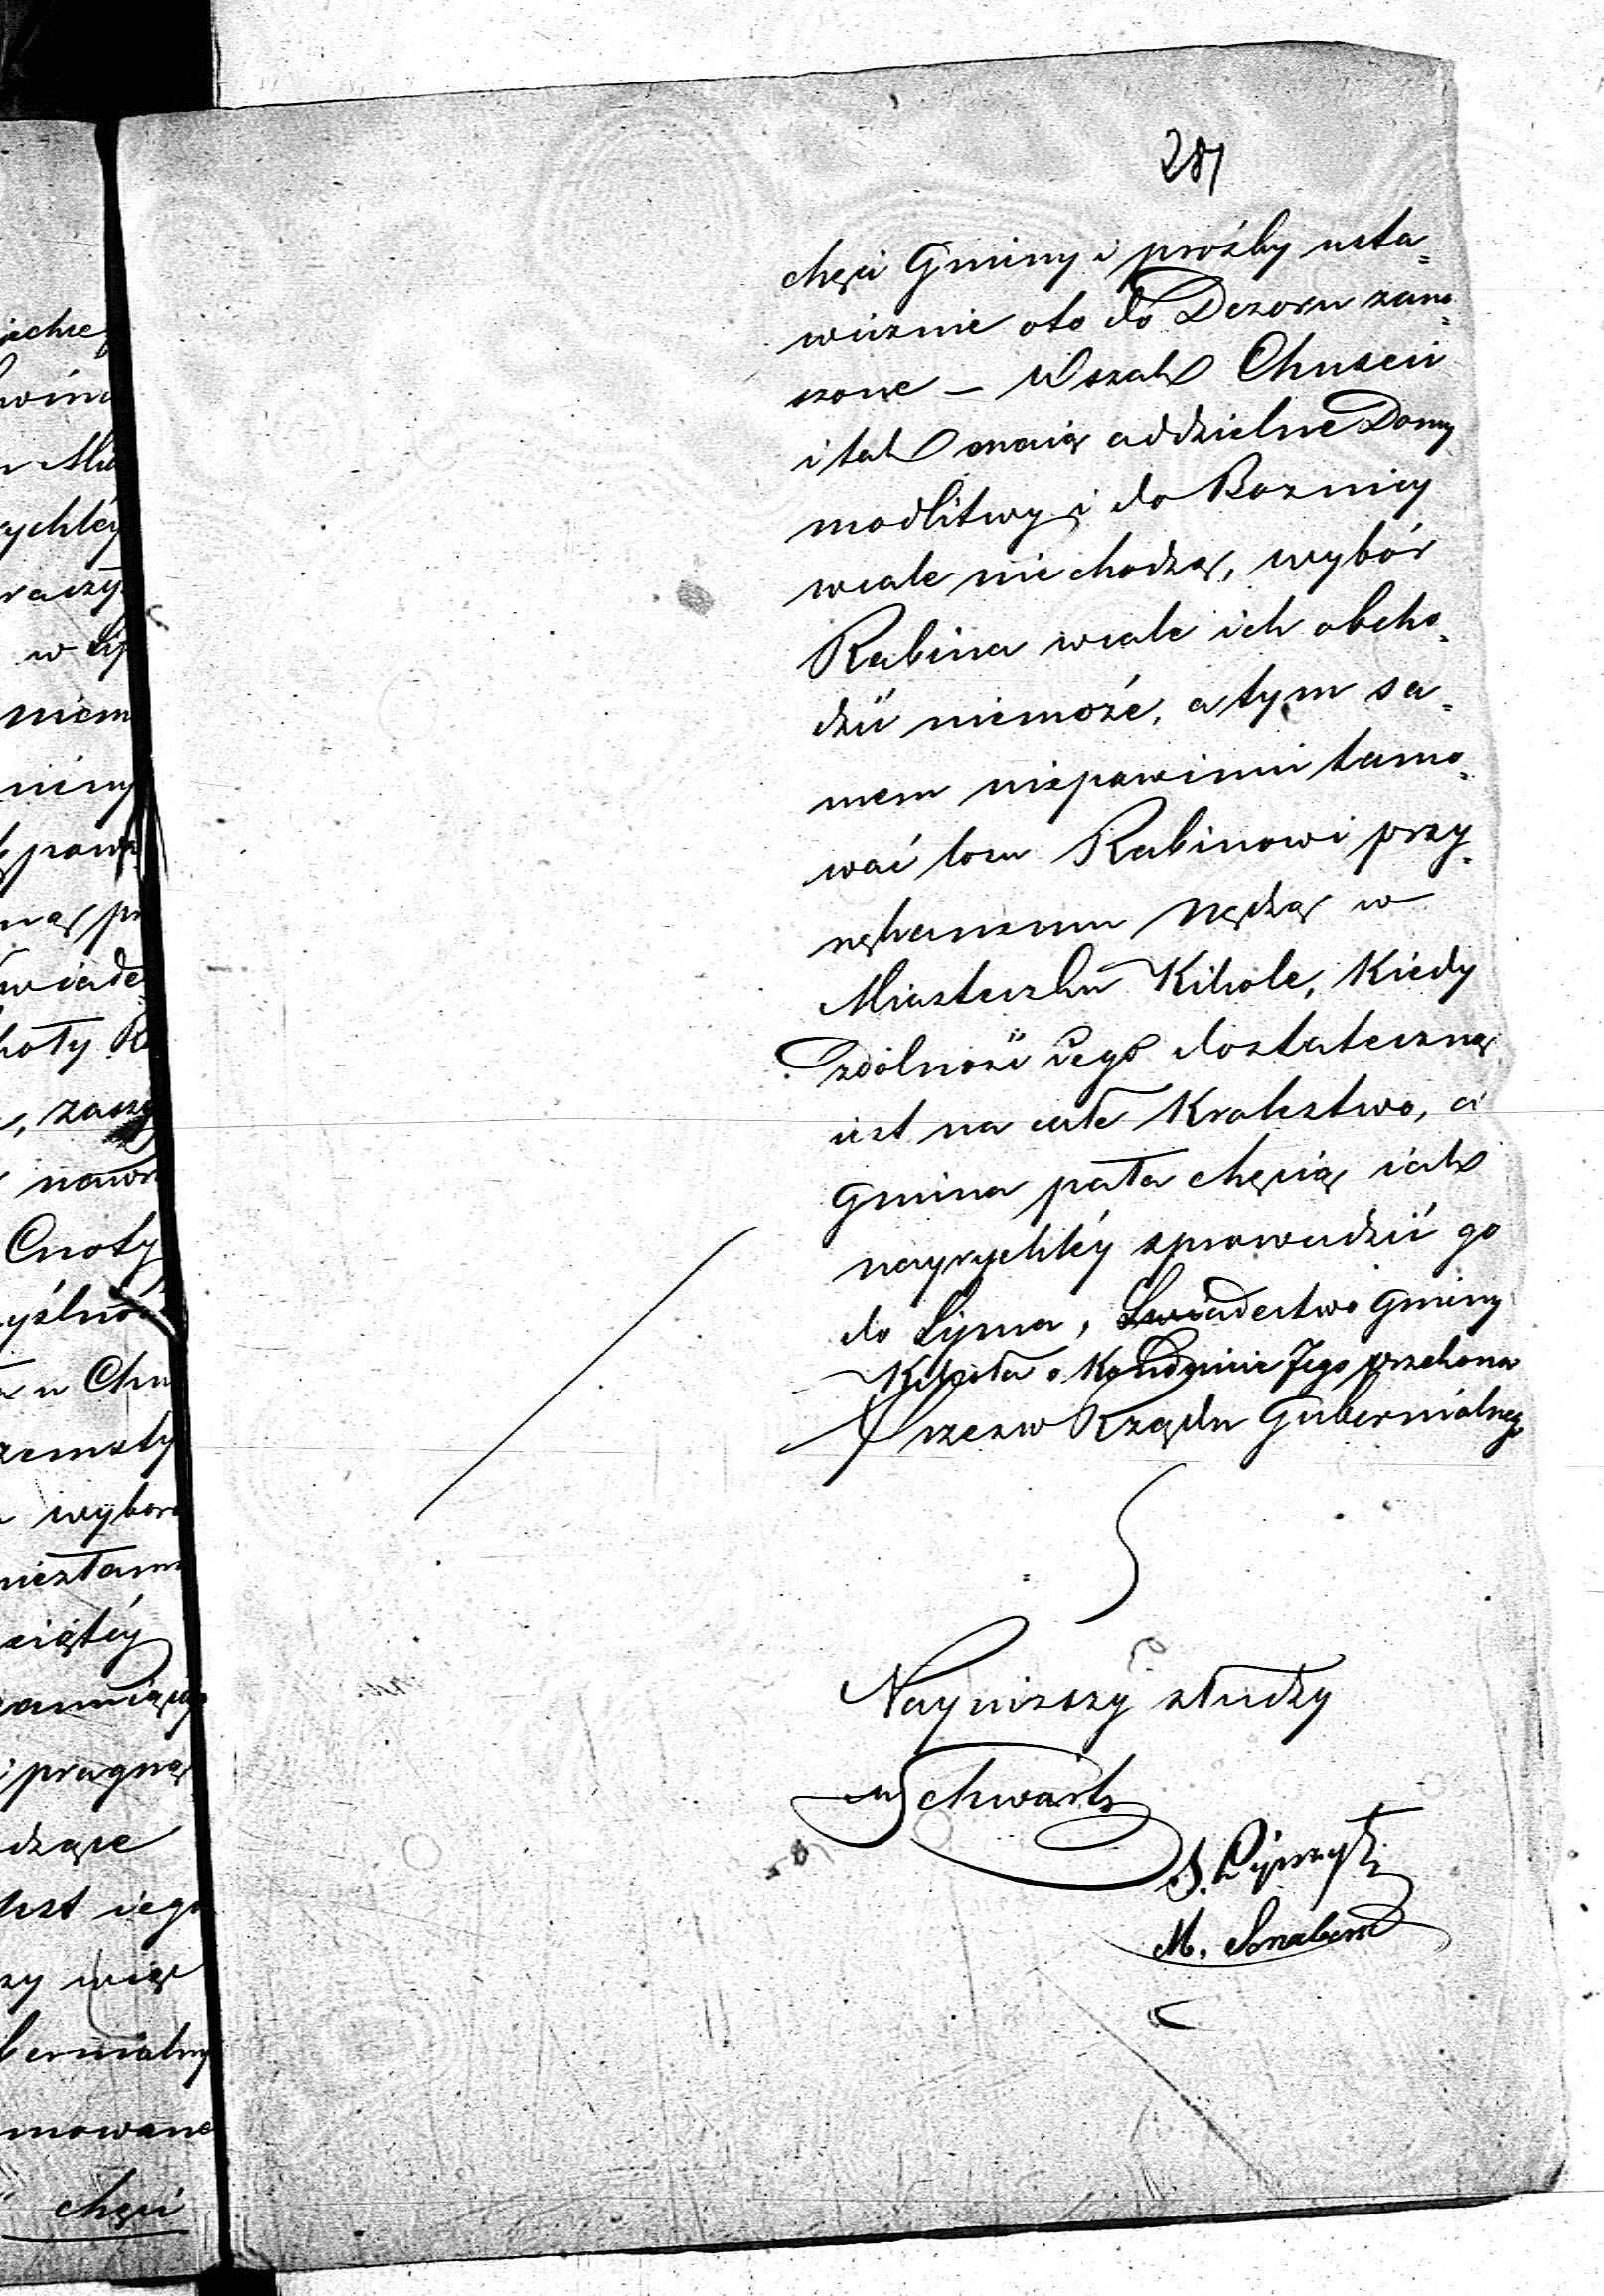 281
chęci Gminy i prośby usta=
wicznie oto do Dozoru zano=
szone – Wszak Chuseci
i tak maią oddzielne Domy
modlitwy i do Boznicy
wcale nie chodzą, wybór
Rabina wcale ich obcho=
dzić niemoże, a tym sa=
mem niepowinni tamo=
wać toru Rabinowi przy=
nękanemu Nędzą w
Miasteczku Kikole, Kiedy
zdolność iego dostateczną
iest na całe Krolestwo, a
Gmina pała chęcią iak
nayrychléy sprowadzić go
do Lipna, Swiadectwo Gminy
Kikoła o Kondyuicie Jego przekona
Przesw Rządu Gubernialnego
Nayniższy słudzy
Schwartz
S. Lipszyk
M. Sonabend
iechce
w Mia
rychléy
raczy
w Lip
niem
miny
powin
ną pr
wiade
noty Ra
, zaszc
nawr
Cnoty
yślnoś
u Chu
zemsty
wyboru
niezłam
ziętéy
i pragną
dzące
iest iego
zy więc
bernialny
mowane
chęci